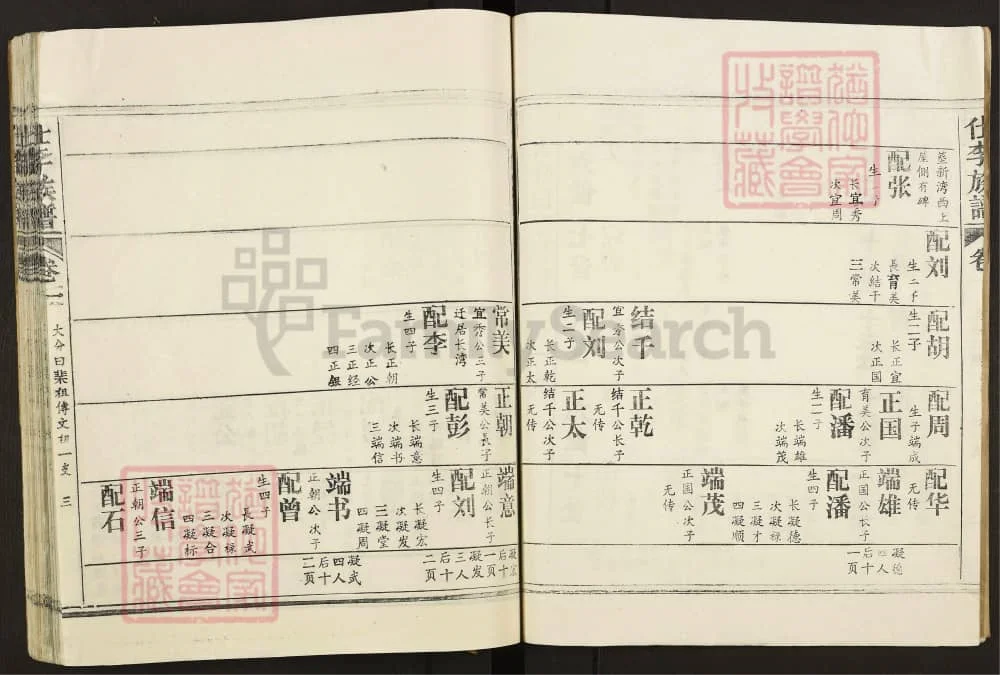 仕李族譜
卷
垄新湾西上
屋側有碑
配张
长宜秀
次宜周
配刘
長育美
次结千
三常美
配胡
生二子
长正宜
次正国
结千
宜秀公次子
配刘
生二子
长正乾
次正太
配周
生子端成
正国
育美公次子
配潘
生二子
长端雄
次端茂
正乾
结千公长子
无传
正太
结千公次子
无传
配华
无传
端雄
正国公长子
配潘
生四子
长凝德
次凝禄
三凝才
四凝顺
端茂
正国公次子
无传
凝德
四人
后十
一页
常美
宜秀公三子
迁居长湾
配李
生四子
长正朝
次正公
三正经
四正银
正朝
常美公長子
配彭
生三子
长端意
次端书
三端信
端意
正朝公长子
配刘
生四子
长凝宏
次凝发
三凝堂
四凝周
端书
正朝公次子
配曾
生四子
長凝武
次凝禄
三凝合
四凝标
端信
正朝公三子
配石
凝宏
后十
一页
凝发
三人
后十
二页
凝武
四人
后十
二页
仕李族譜
卷一
大今曰斐祖傳文初一支
三
FamilySearch